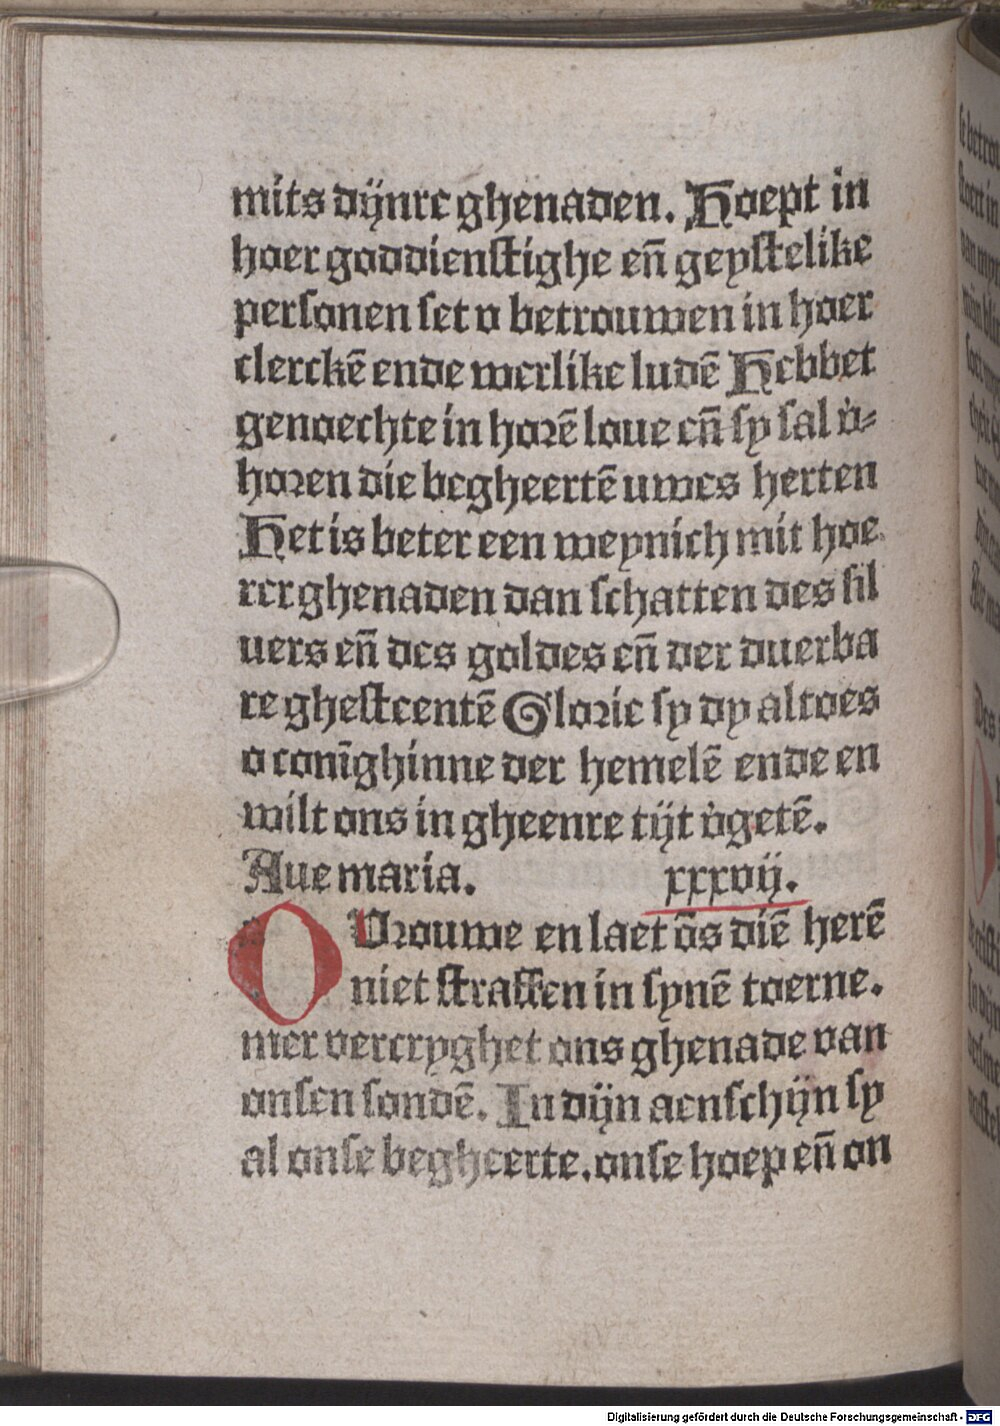 mits dÿnre ghenaden. Hoept in
hoer goddienstighe eñ geystelike
personen set v betrouwen in hoer
clerckē ende werlike ludē Hebbet
genoechte in horē loue eñ sy sal v̇-
horen die begheertē uwes herten
Het is beter een weynich mit hoe
rer ghenaden dan schatten des sil
uers eñ des goldes eñ der duerba
re ghesteentē Glorie sy dy altoes
o conīghinne der hemelē ende en
wilt ons in gheenre tÿt v̇getē.
Aue maria. xxxvij.
O Vrouwe en laet ōs diē herē
niet straffen in synē toerne.
mer vercryghet ons ghenade van
onsen sondē. In dÿn aenschÿn sy
al onse begheerte. onse hoep eñ on
Digitalisierung gefördert durch die Deutsche Forschungsgemeinschaft - DFG